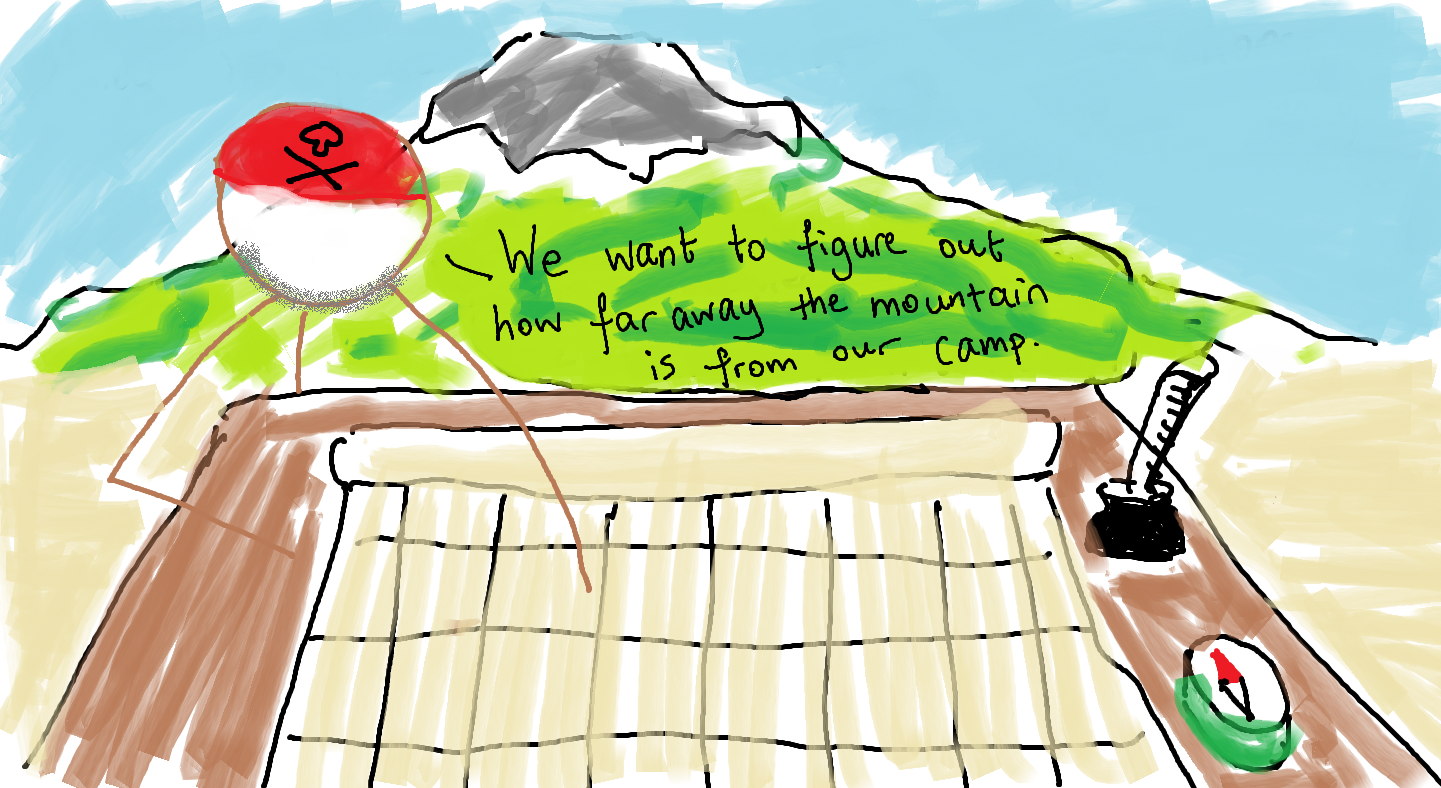 We want to figure out
how far away the mountain
is from our camp.